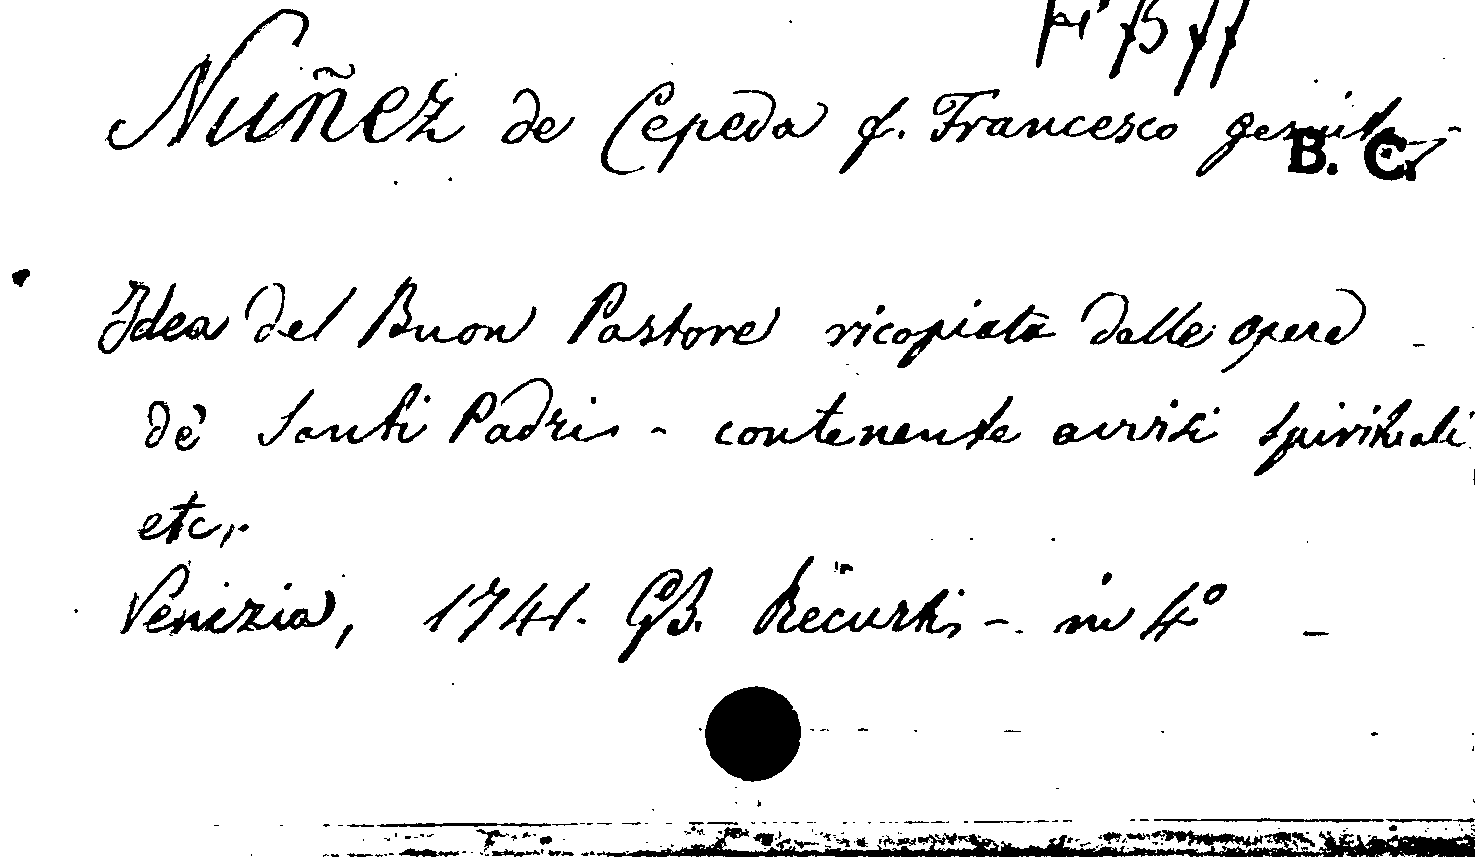 Nuñez de Cepeda f. Francesco gesuita -
B. C.
Idea del Buon Pastore ricopiata dalle opere -
de' Santi Padri - contenente avvisi spirituali
etc.
Venezia, 1741. GB. Recurti - in 4º -